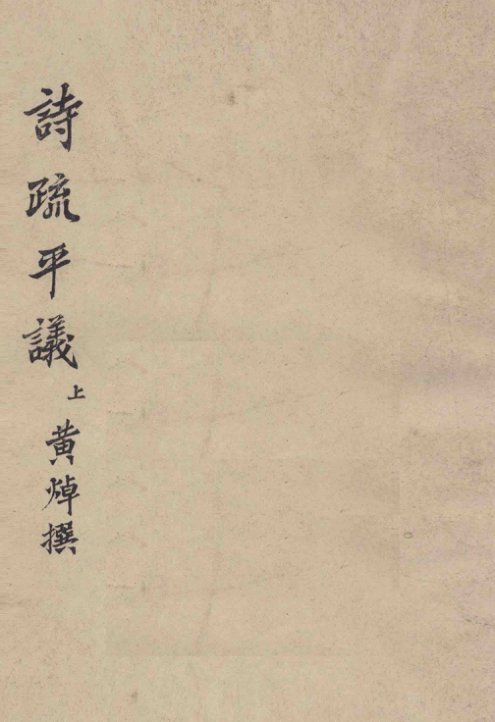 詩疏平議 上
黄焯撰